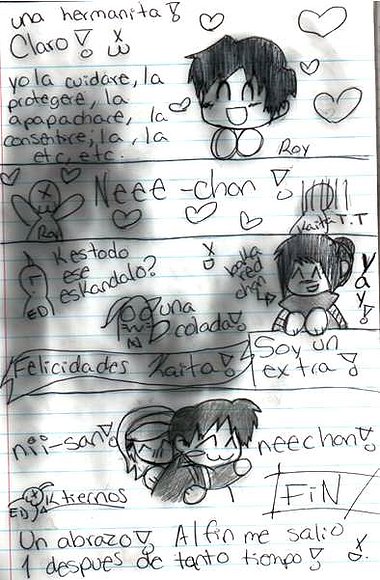 una hermanita!
Claro! X3
yo la cuidare, la
protegere, la
apapachare, la
consentire, la, la
etc, etc.
Roy
Neee-chan!
Roy
Karita T.T
K es todo
ese
eskandalo?
ED
XD
una
colada!
WIN
chan
yay!
Felicidades Karita!
Soy un
extra!
nii-san!
neechan!
ED
K tiernos
FiN
Un abrazo! Al fin me salio
1 despues de tanto tiempo! XD